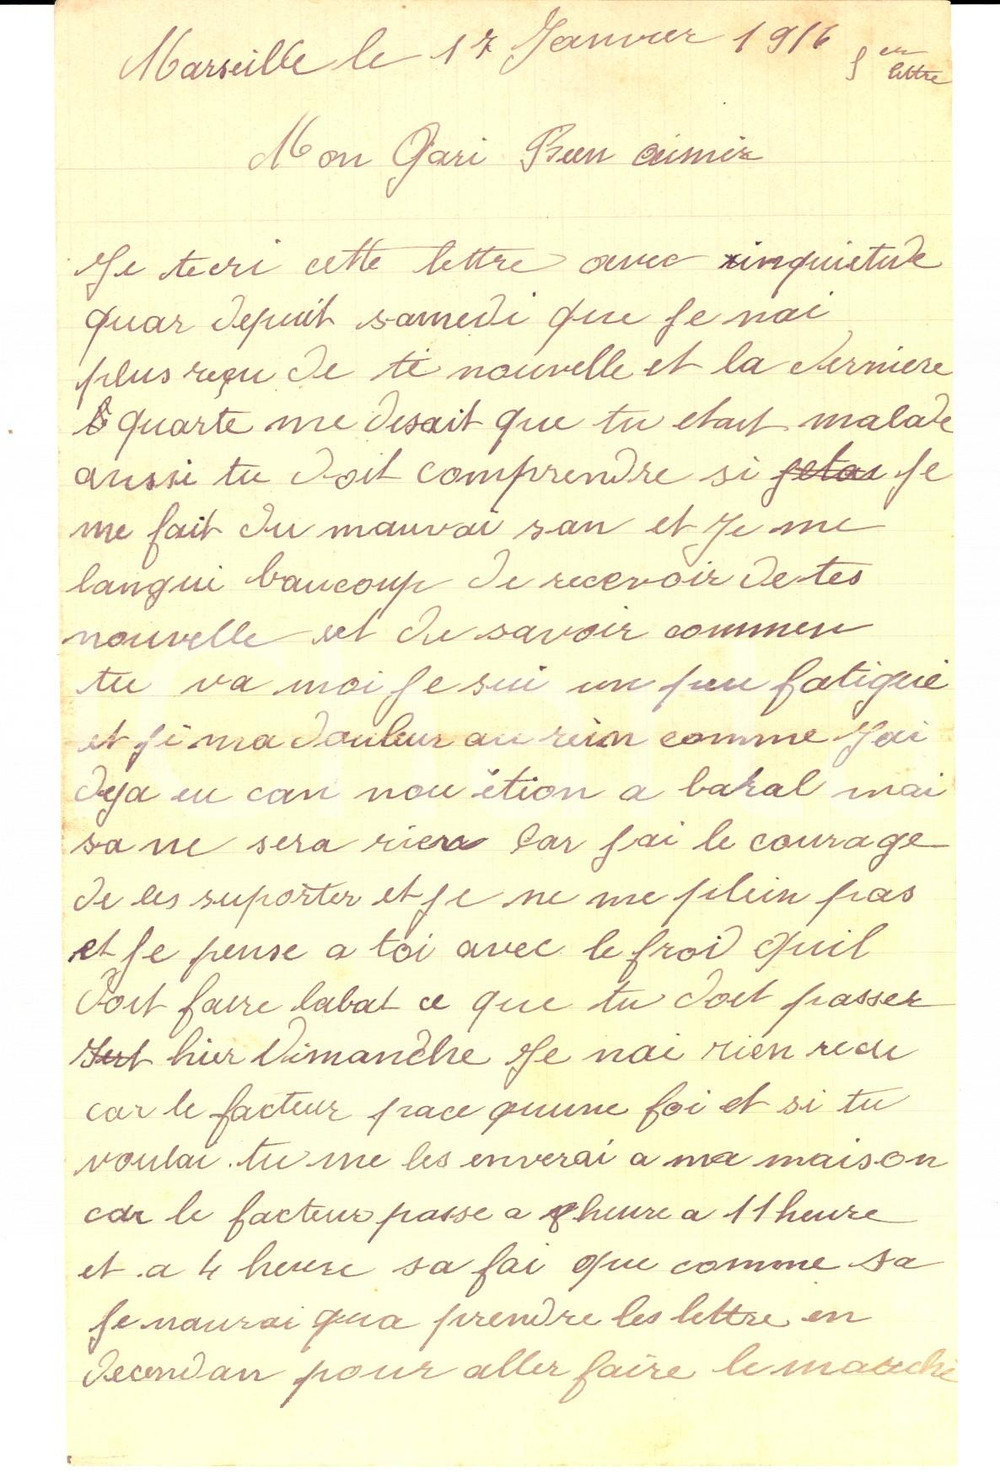 Marseille le 17 Janvier 1916
er
lettre
Mon Gari Bien aimer
Je tecri cette lettre avec inquietude
quar depuit samedi que je nai
plus reçu de te nouvelle et la derniere
quarte me desait que tu etait malade
aussi tu doit comprendre si jetai je
me fait du mauvai san et Je me
langui baucoup de recevoir de tes
nouvelle et de savoir commen
tu va moi je sui un peu fatigué
et ji ma douleur au rein comme Jai
deja eu can nou étion a bakal mai
sa ne sera rien car jai le courage
de les suporter et je ne me plein pas
et je pense a toi avec le froid quil
doit faire labat ce que tu doit passer
hier Dimanche Je nai rien recu
car le facteur pace quune foi et si tu
voulai tu me les enverai a ma maison
car le facteur passe a 8 heure a 11 heure
et a 4 heure sa fai que comme sa
je naurai qua prendre les lettre en
decendan pour aller faire le marché